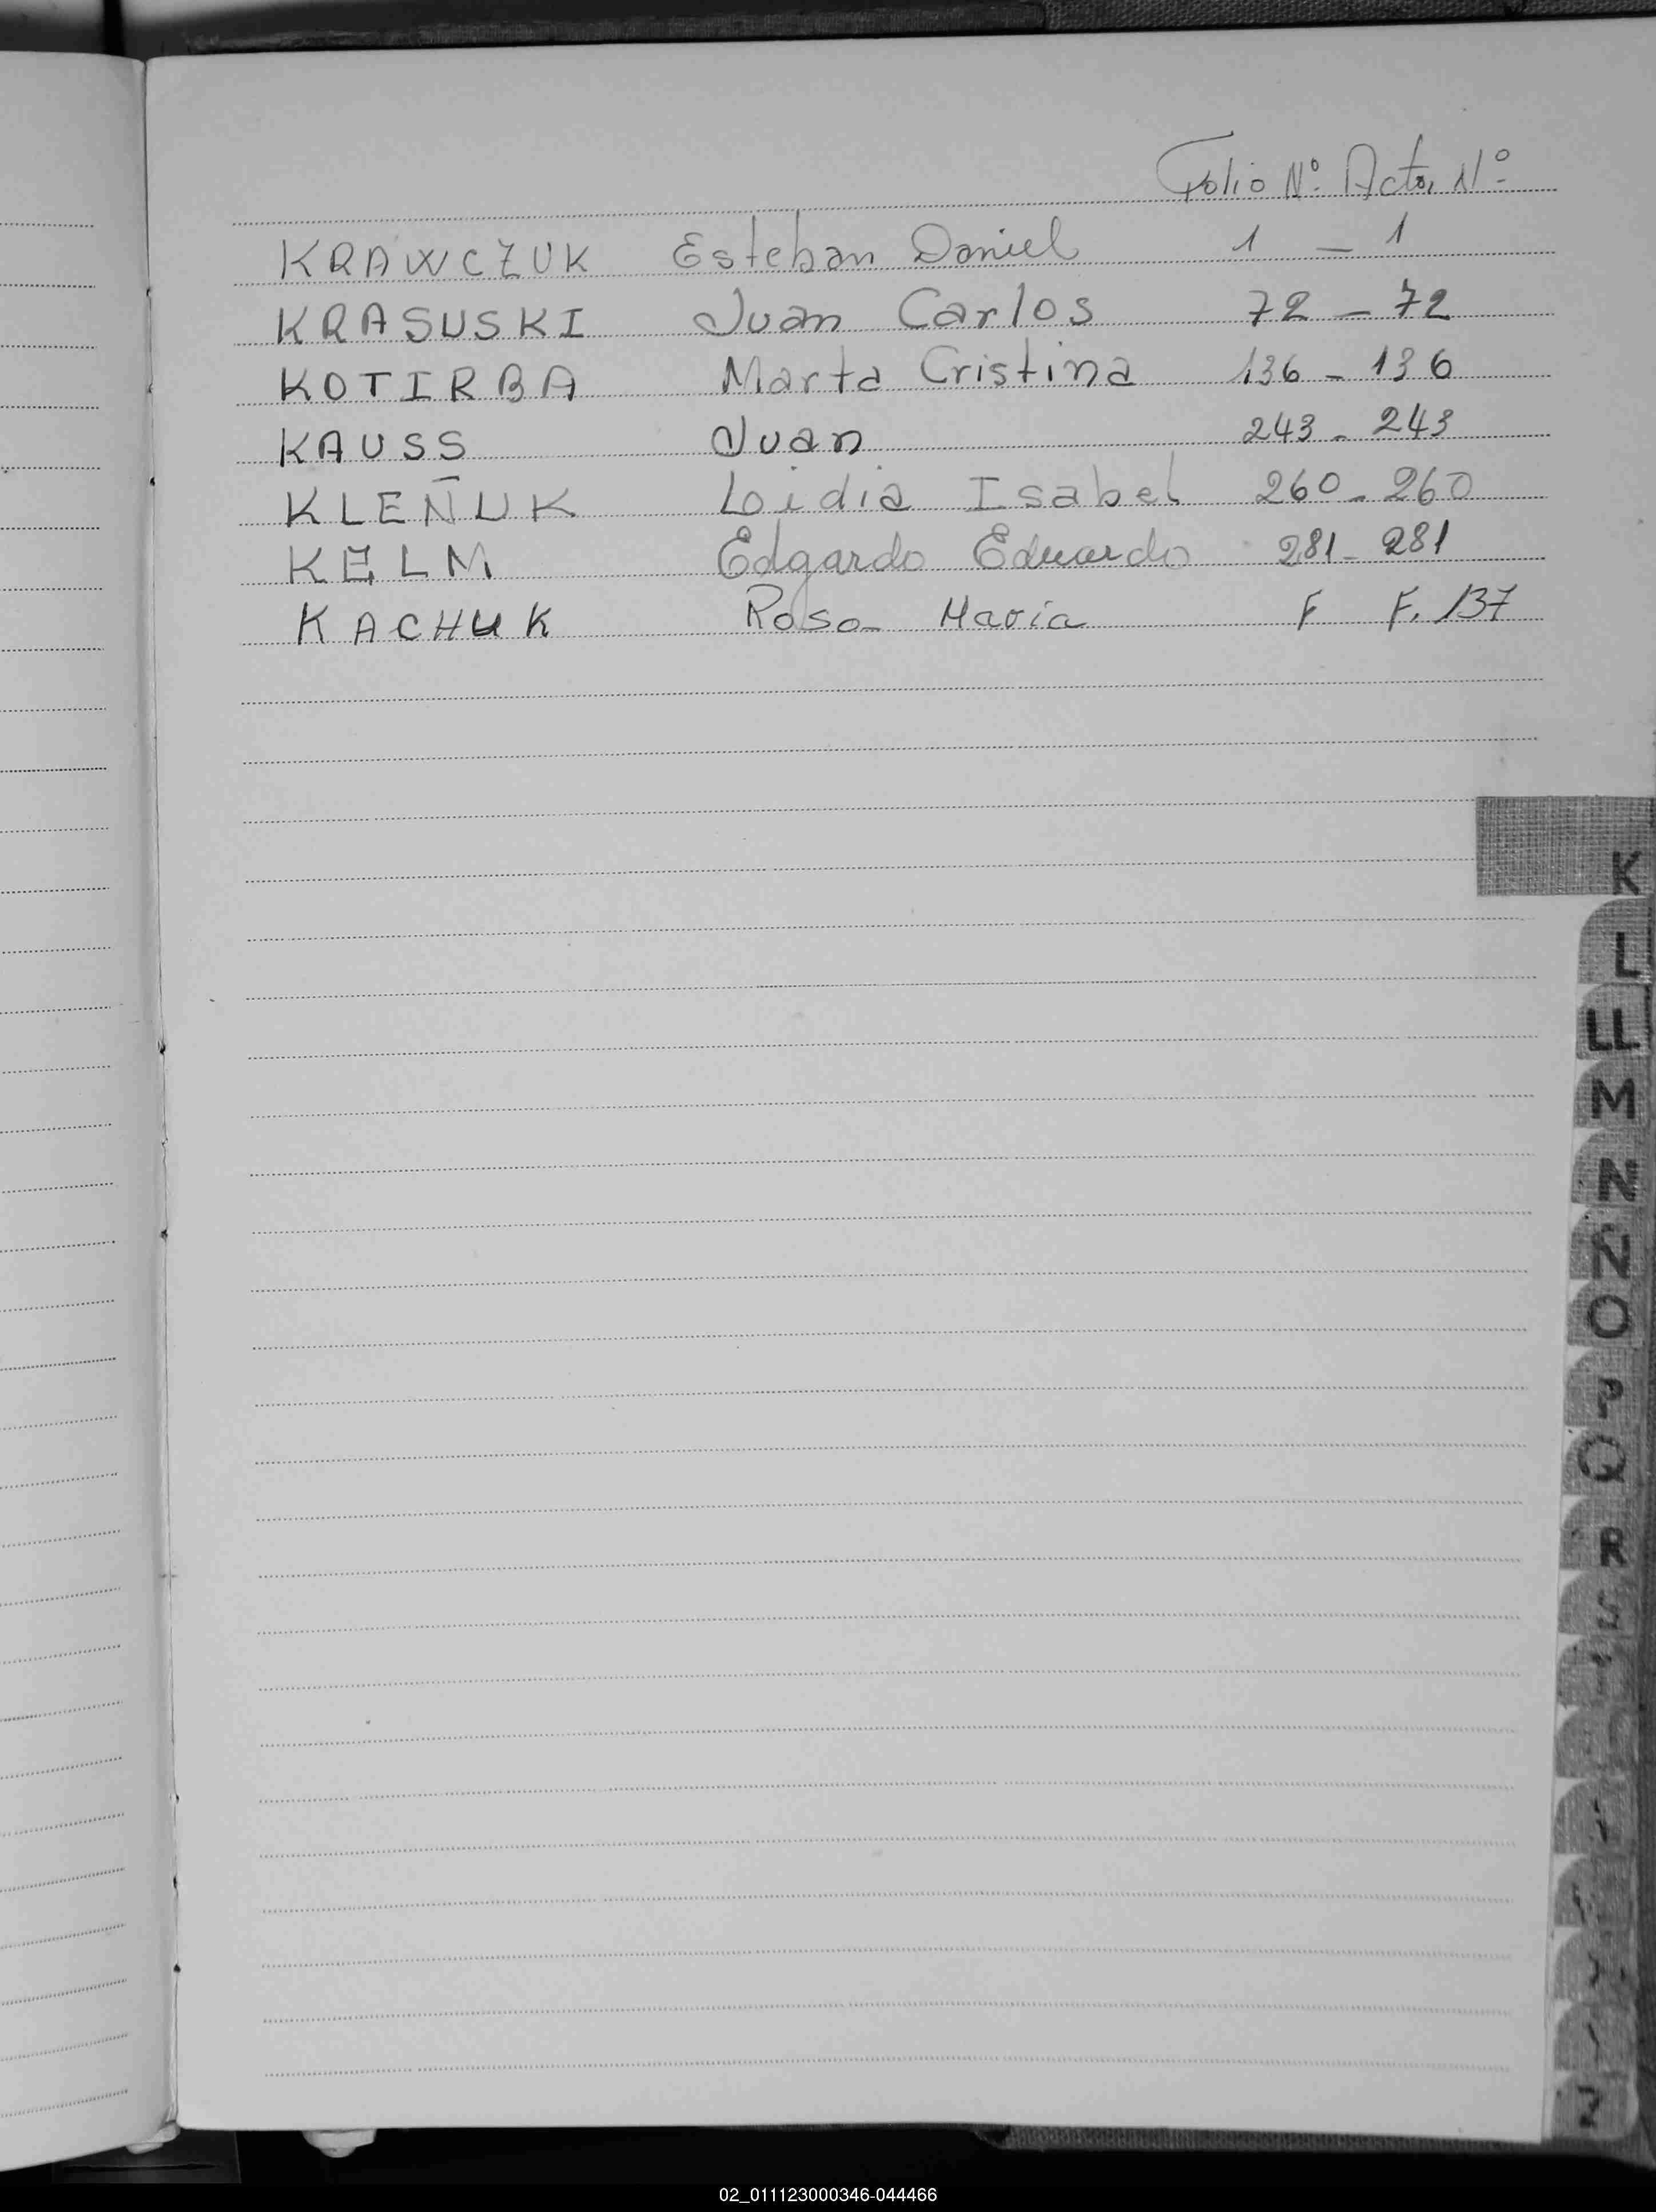 Folio Nº. Acta, Nº
KRAWCZUK Esteban Daniel 1 - 1
KRASUSKI Juan Carlos 72 - 72
KOTIRBA Marta Cristina 136 - 136
KAUSS Juan 243 - 243
KLEÑUK Loidia Isabel 260 - 260
KELM Edgardo Eduardo 281 - 281
KACHUK Rosa Maria F F. 137
K
L
LL
M
N
Ñ
O
P
Q
R
S
Z
02_011123000346-044466